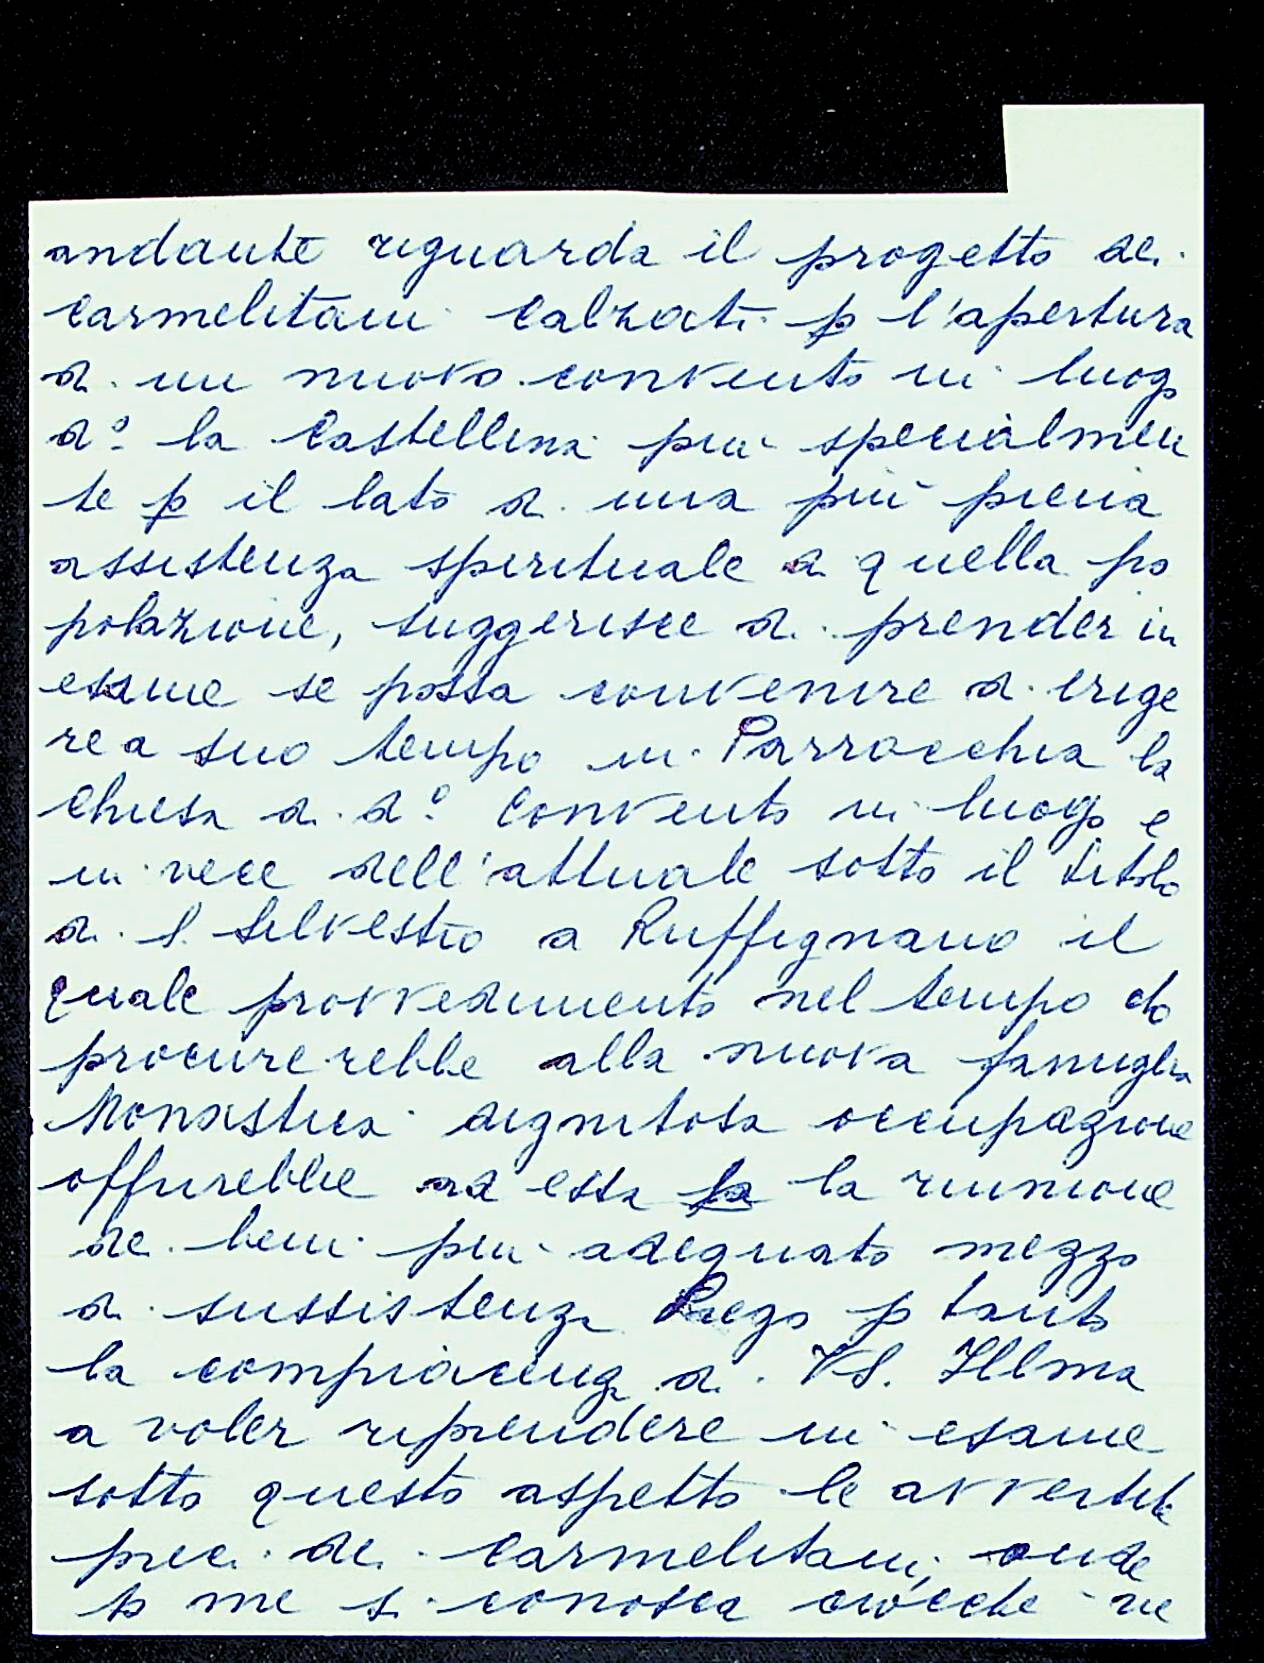 andante riguarda il progetto dei
Carmelitani Calzati p l'apertura
di un nuovo convento in luogo
dº la Castellina più specialmen
te p il lato di una più piena
assistenza spirituale a quella po
polazione, suggerisce di prender in
esame se possa convenire di erige
re a suo tempo in Parrocchia la
Chiesa di dº Convento in luogo e
in vece dell'attuale sotto il titolo
di S. Silvestro a Ruffignano il
quale provvedimento nel tempo che
procurerebbe alla nuova famiglia
Monastica dignitosa occupazione
offrirebbe ad essa la riunione
dei beni più adeguato mezzo
di sussistenza Prego p tanto
la compiacenza di VS. Illma
a voler riprendere in esame
sotto questo aspetto le avvertite
preci dei Carmelitani, onde
p me si conosca ciocchè ne